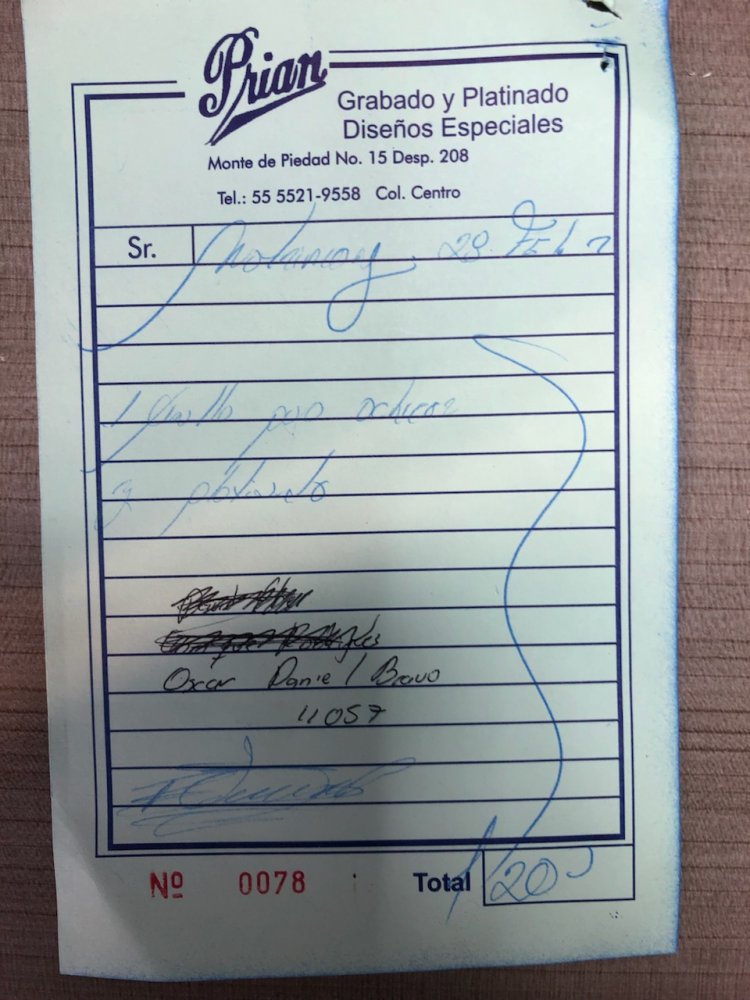 Prian
Grabado y Platinado
Diseños Especiales
Monte de Piedad No. 15 Desp. 208
Tel.: 55 5521-9558 Col. Centro
Sr. 28 Feb
1 para
y platinado
Oscar Daniel Bravo
11057
Nº 0078 Total 120